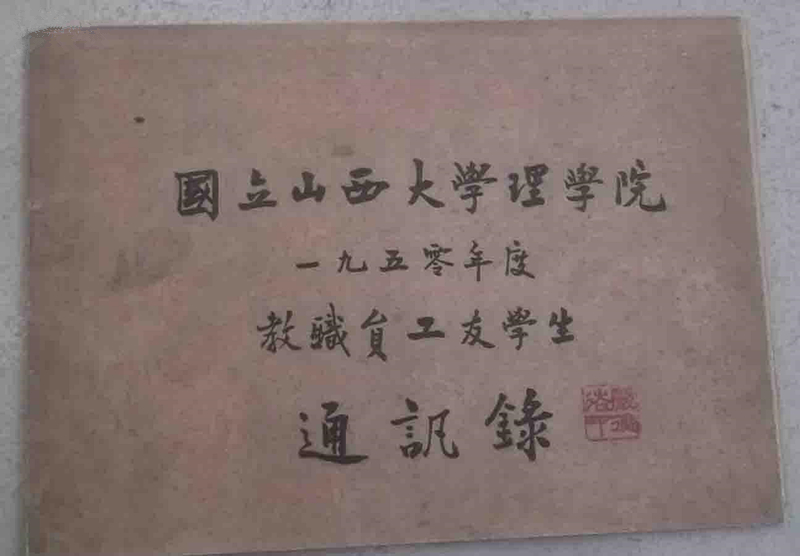 國立山西大學理學院
一九五零年度
教職員工友學生
通訊錄